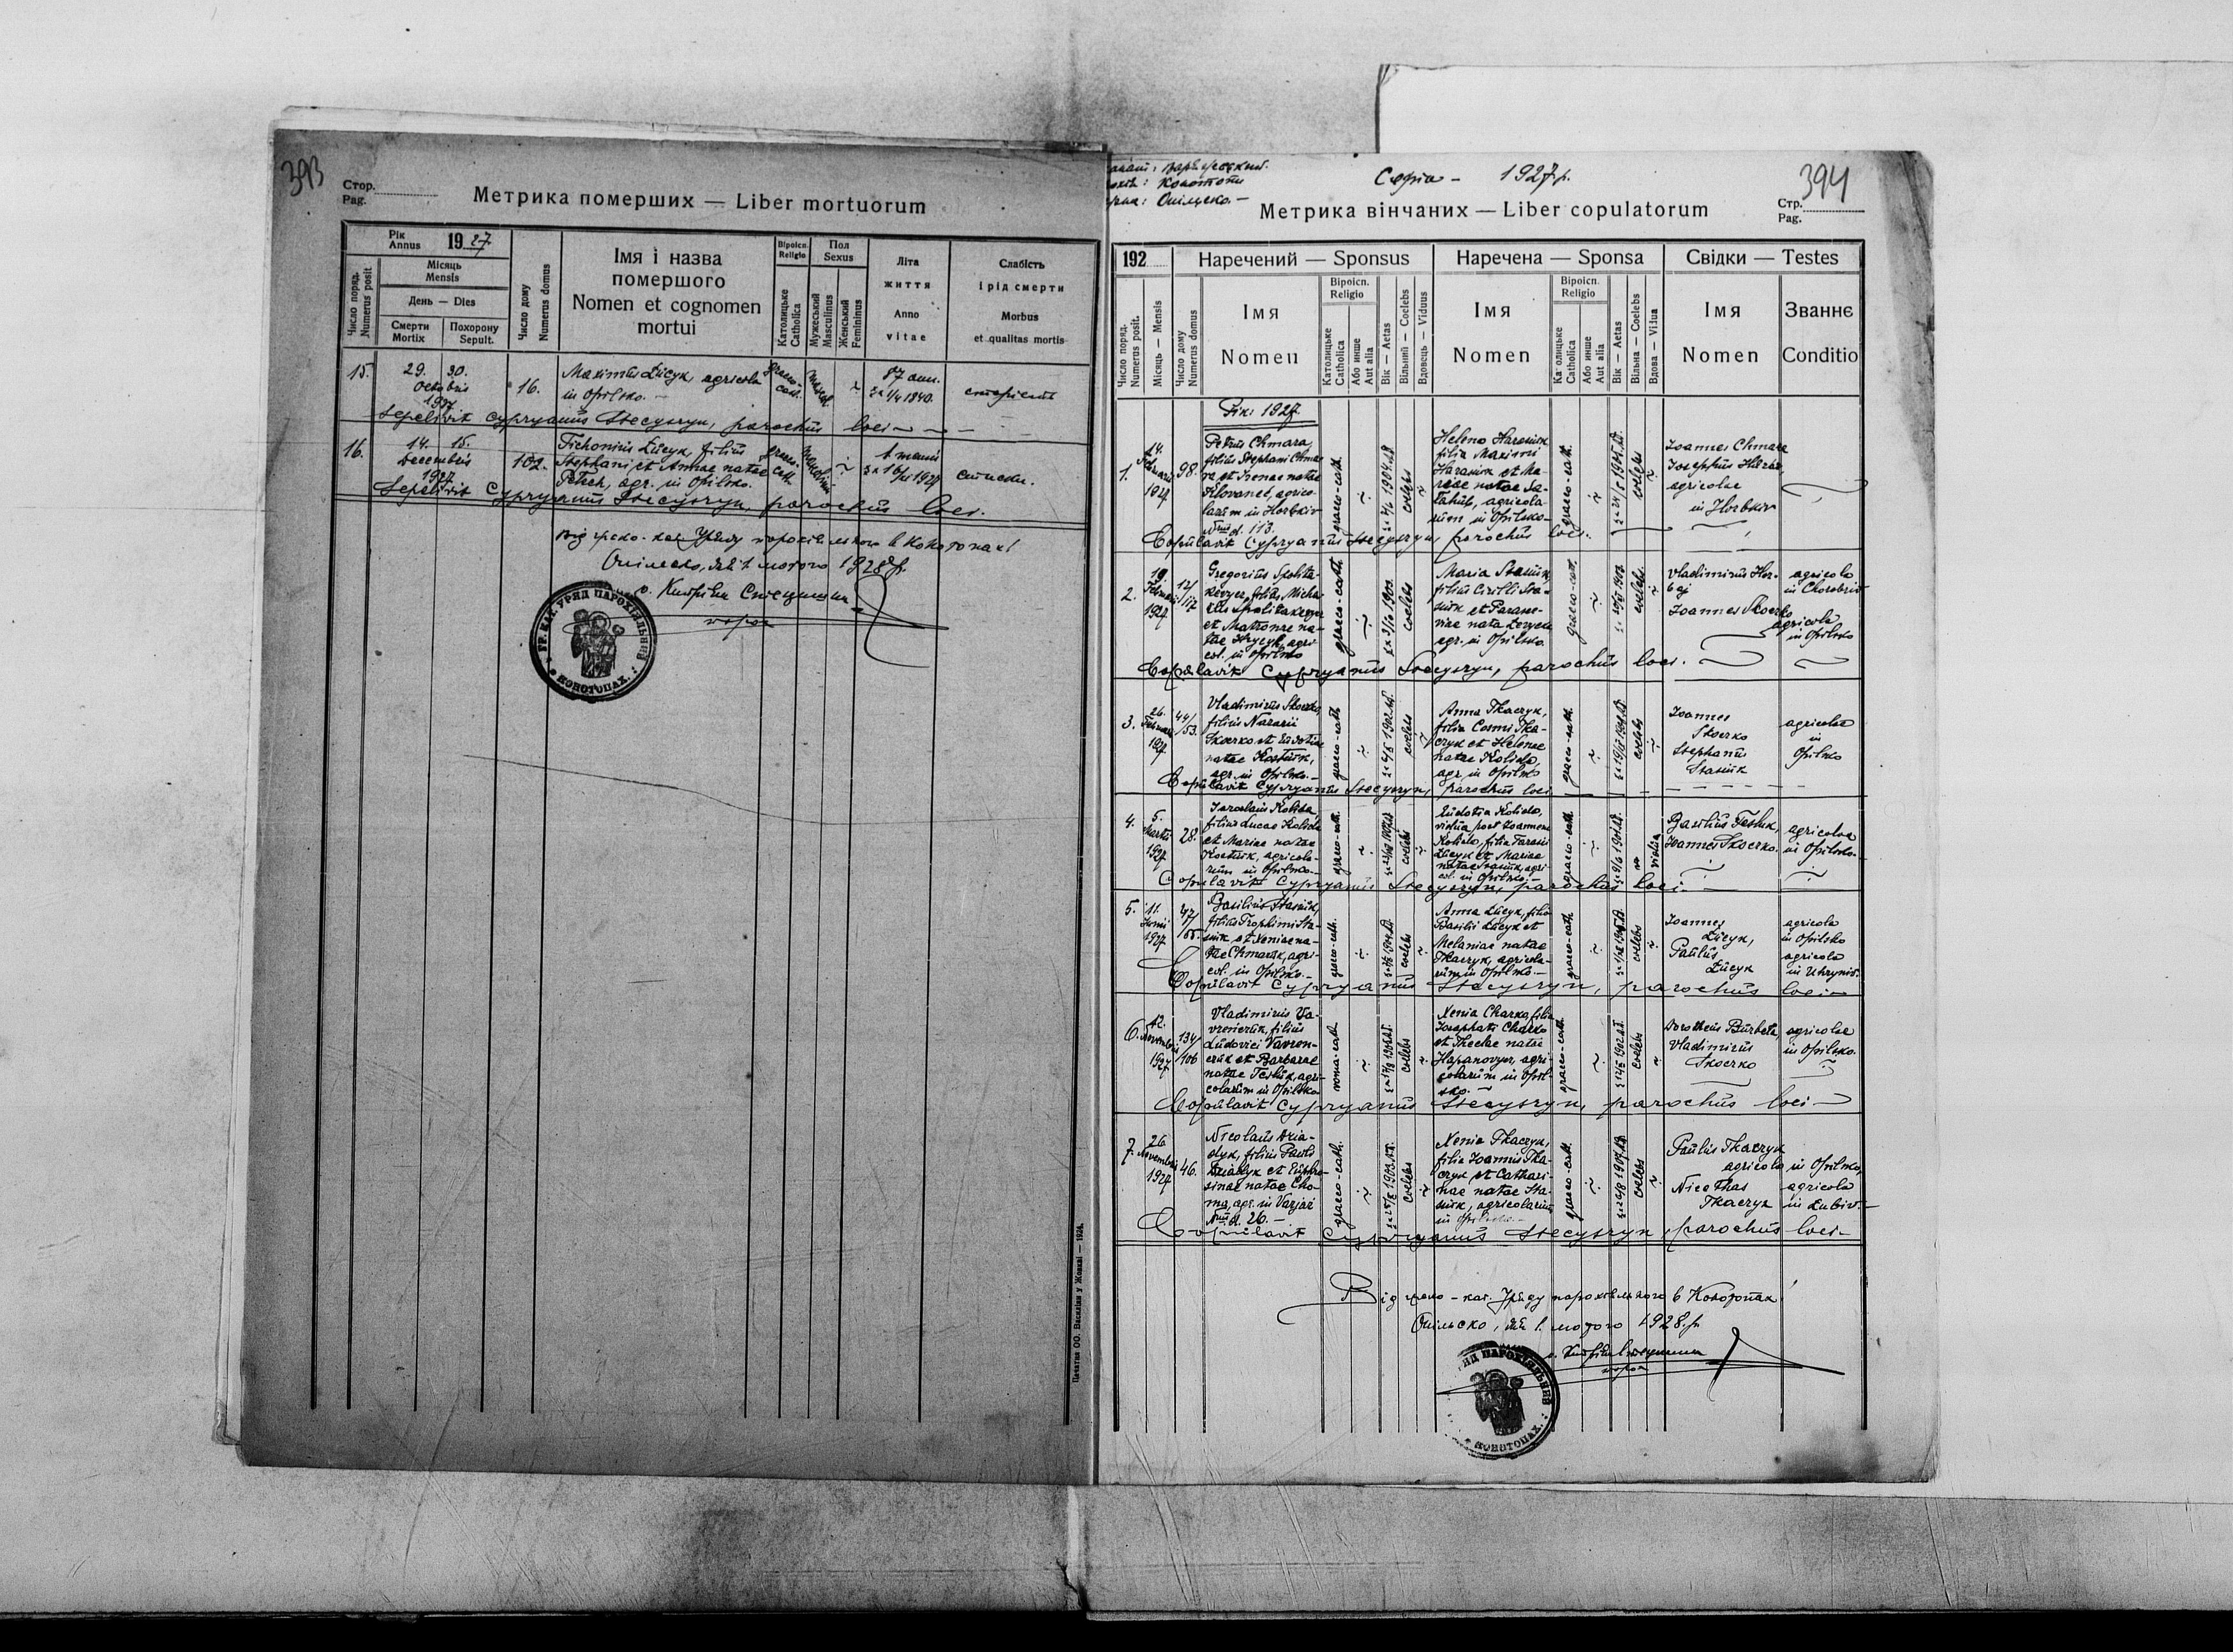 393
Стор.
Pag.
Метрика померших — Liber mortuorum
Рік
Annus
1927
Число поряд.
Numerus posit
Місяць
Mensis
День — Dies
Смерти
Mortix
Похорону
Sepult.
Число дому
Numerus domus
Імя і назва
помершого
Nomen et cognomen
mortui
Віроісп.
Religio
Католицьке
Catholica
Пол
Sexus
Мужеський
Masculinus
Женський
Femininus
Літа
життя
Anno
vitae
Слабість
і рід смерти
Morbus
et qualitas mortis
15.
29. 30.
Octobris
1927
16.
Maximus Łucyk, agricola
in Opilsko. —
graeco-
cath.
87 ann.
старість
Sepelivit Cypryanus Stecyszyn, parochus loci
16.
14. 15.
Decembris
1927
102.
Tichonius Łucyk, filius
Stephani et Annae natae
agr. in Opilsko.
graeco-
cath.
Sepelivit Cypryanus Stecyszyn, parochus loci.
Від греко-кат Уряду парохіяльного в Конотопах
Опільско, дня 1 лютого 1928 р.
о. Кипріян Стецишин
парох
ГР. КАТ. УРЯД ПАРОХІЯЛЬНИЙ
в КОНОТОПАХ.
Печатня ОО. Василіян у Жовкві — 1924.
Конотопи
Опільско. —
1927 р.
394
Метрика вінчаних — Liber copulatorum
Стр.
Pag.
192
Наречений — Sponsus
Наречена — Sponsa
Свідки — Testes
Число поряд.
Numerus posit.
Місяць — Mensis
Число дому
Numerus domus
Імя
Nomen
Віроісп.
Religio
Католицьке
Catholica
Або инше
Aut alia
Вік — Aetas
Вільний — Coelebs
Вдовець — Viduus
Імя
Nomen
Віроісп.
Religio
Католицьке
Catholica
Або инше
Aut alia
Вік — Aetas
Вільна — Coelebs
Вдова — Vidua
Імя
Nomen
Званнє
Conditio
Рік: 1927
1.
14.
Februarii
1927
98.
Petrus Chmara,
filius Stephani Chma-
rae et Irenae natae
agrico-
larum in Horbkiv
d. 113.
graeco-cath.
coelebs
Helena Harasiuk
filia Maximi
Harasiuk et Ma-
riae natae
agricola-
rum in Opilsko
graeco-cath.
coelebs
Ioannes Chmara
Iosephus
agricolae
in Horbkiv
Copulavit Cypryanus Stecyszyn, parochus loci.
2.
19.
Februarii
1927
12/
117
Gregorius
filius Michae-
lis
et Matronae na-
tae Hrycyk, agri-
col. in Opilsko
graeco-cath.
coelebs
Maria Stasiuk,
filia Cirilli Sta-
siuk et Parasce-
viae nata
agr. in Opilsko
graeco-cat.
coelebs
Vladimirus Hor-
baj
Ioannes Skoczko
agricola
in Chorobriv
agricola
in Opilsko
Copulavit Cypryanus Stecyszyn, parochus loci.
3.
26.
Februarii
1927
44/
53.
Vladimirus Skoczko,
filius Nazarii
Skoczko et Eudotiae
natae Kostiuk,
agr. in Opilsko. —
graeco-cath.
coelebs
Anna Tkaczyk,
filia Cosmi Tka-
czyk et Helenae
natae Kolida,
agr. in Opilsko
graeco-cath.
coelebs
Ioannes
Skoczko
Stephanus
Stasiuk
agricolae
in
Opilsko
Copulavit Cypryanus Stecyszyn, parochus loci
4.
5.
Martii
1927
28.
Iaroslaus Kolida,
filius Lucae Kolida
et Mariae natae
Kostiuk, agricola-
rum in Opilsko —
graeco-cath.
coelebs
Eudotia Kolida,
vidua post Ioannem
Kolida, filia Tarasii
Łucyk et Mariae
natae Stasiuk, agri-
col. in Opilsko. —
graeco-cath.
vidua
Basilius
Ioannes Skoczko.
agricolae
in Opilsko.
Copulavit Cypryanus Stecyszyn, parochus loci —
5.
11.
Junii
1927
47/
Basilius Stasiuk,
filius Trophimi Sta-
siuk et Xeniae na-
tae Chmaruk, agri-
col. in Opilsko. —
graeco-cath.
coelebs
Anna Łucyk, filia
Basilii Łucyk et
Melaniae natae
Tkaczyk, agricola-
rum in Opilsko —
graeco-cath.
coelebs
Ioannes
Łucyk,
Paulus
Łucyk
agricola
in Opilsko
agricola
in Uhryniv.
Copulavit Cypryanus Stecyszyn, parochus loci —
6.
12.
Novembris
1927
134/
106
Vladimirus Va-
vrenczuk, filius
Ludovici Vavren-
czuk et Barbarae
natae agri-
colarum in Opilsko
roma-cath.
coelebs
Xenia Charka, filia
Iosaphati Charka
et Theclae natae
Hapanovycz, agri-
colarum in Opil-
sko.
graeco-cath.
coelebs
Dorotheus Burbela,
Vladimirus
Skoczko
agricolae
in Opilsko.
Copulavit Cypryanus Stecyszyn, parochus loci —
7.
26.
Novembris
1927
46.
Nicolaus Dzia-
dyk, filius Pauli
Dziadyk et Euphro-
sinae natae Cho-
ma, agr. in Variaż
d. 26. —
graeco-cath.
coelebs
Xenia Tkaczyk,
filia Ioannis Tka-
czyk et Cathari-
nae natae Sta-
siuk, agricolarum
in Opilsko. —
graeco-cath.
coelebs
Paulus Tkaczyk
agricola in Opilsko,
Nicethas
Tkaczyk
agricola
in Lubiv. —
Copulavit Cypryanus Stecyszyn, parochus loci —
Від греко-кат. Уряду парохіяльного в Конотопах
Опільско, дня 1. лютого 1928. р.
о. Кипріян Стецишин
парох
ЯД ПАРОХІЯЛЬНИЙ
КОНОТОПАХ.